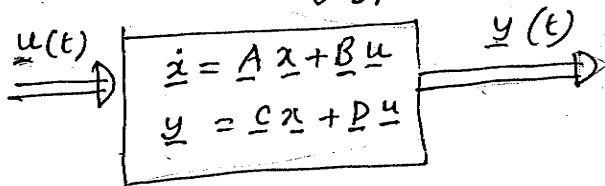 u(t)
ẋ = A x + B u
y = C x + D u
y(t)